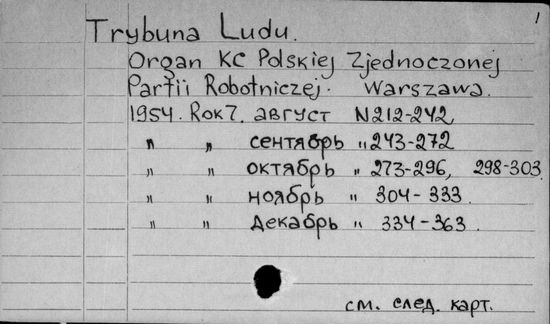 1
Trybuna Ludu.
Organ KC Polskiej Zjednoczonej
Partii Robotniczej. Warszawa.
1954. Rok 7. август N212-242,
" " сентябрь " 243-272
" " октябрь " 273-296, 298-303.
" " ноябрь " 304-333.
" " декабрь " 334-363.
см. след. карт.